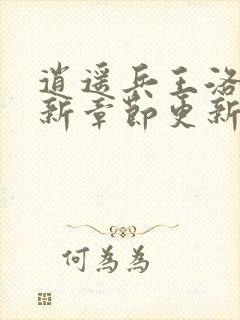 逍遥兵王洛
新章節更新
何為為